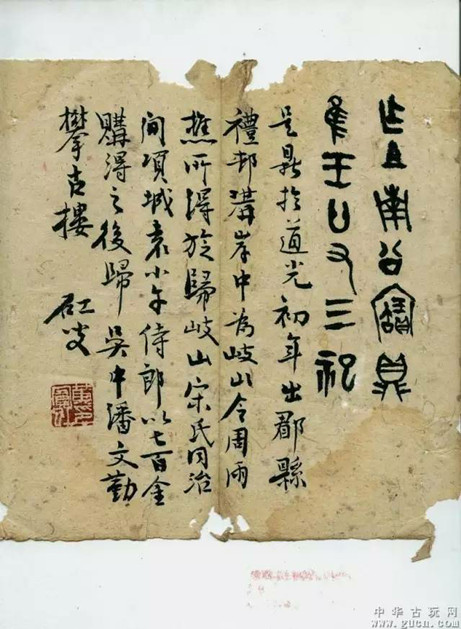 乍且南公寶鼎
隹王廿又三祀
是鼎於道光初年出郿縣
禮邨溝岸中為岐山令周雨
樵所得旋歸岐山宋氏同治
間項城袁小午侍郎以七百金
購得之後歸 吳中潘文勤
攀古樓
叟
中华古玩网
www.gucn.com